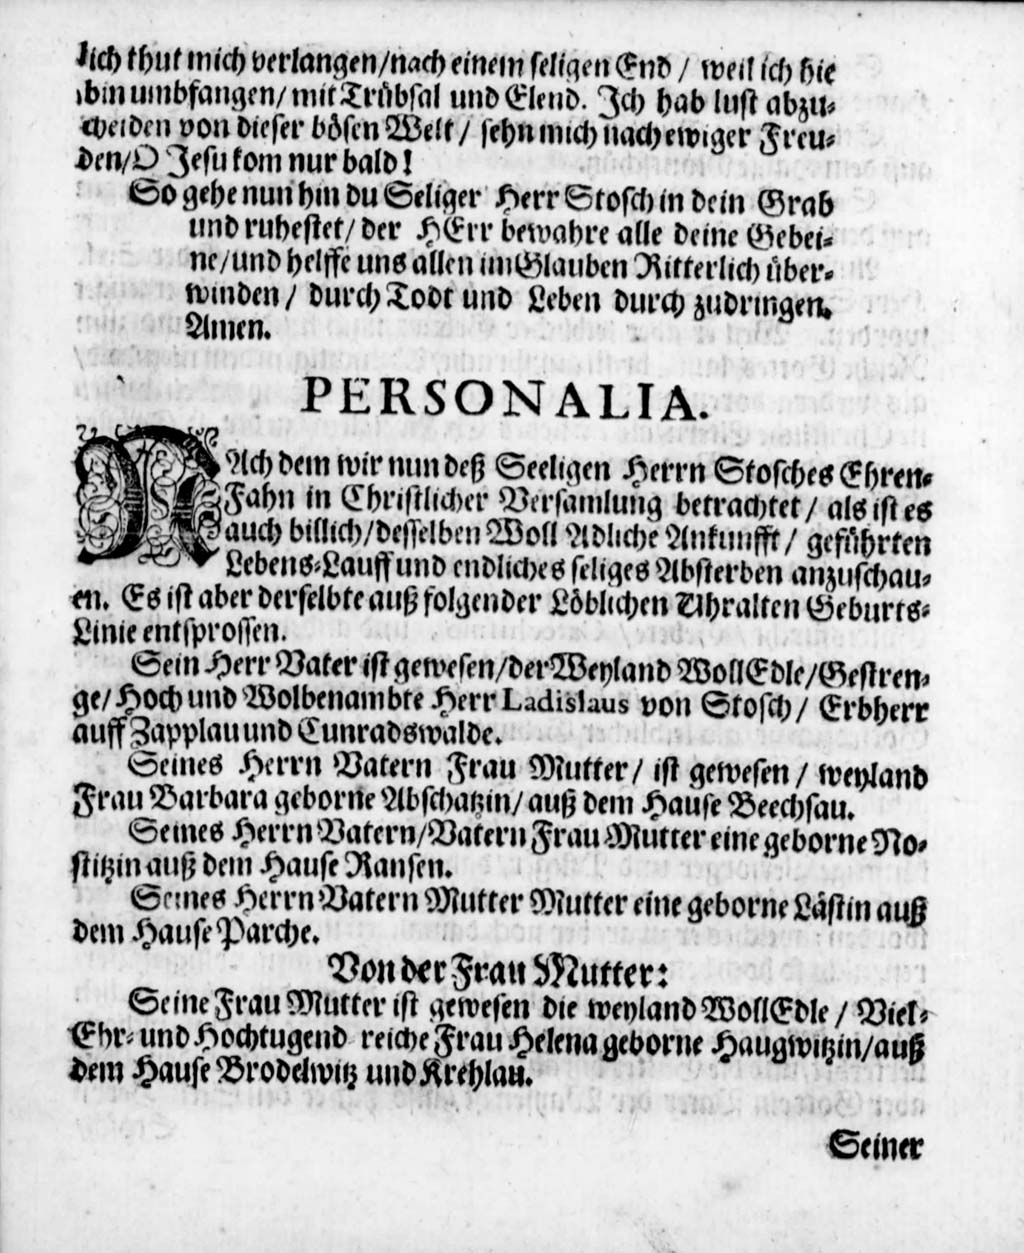 lich thut mich verlangen/nach einem seligen End / weil ich hie
bin umbfangen/ mit Trübsal und Elend. Ich hab lust abzu-
scheiden von dieser bösen Welt / sehn mich nach ewiger Freu-
den/O Jesu kom nur bald!
So gehe nun hin du Seliger Herr Stosch in dein Grab
und ruhestet/ der HErr bewahre alle deine Gebei-
ne/und helffe uns allen im Glauben Ritterlich über-
winden / durch Todt und Leben durch zudringen.
Amen.
PERSONALIA.
NAch dem wir nun deß Seeligen Herrn Stosches Ehren-
Fahn in Christlicher Versamlung betrachtet / als ist es
auch billich/desselben Woll Adliche Ankunfft / geführten
Lebens-Lauff und endliches seliges Absterben anzuschau-
en. Es ist aber derselbte auß folgender Löblichen Uhralten Geburts-
Linie entsprossen.
Sein Herr Vater ist gewesen/der Weyland WollEdle/Gestren-
ge/ Hoch und Wolbenambte Herr Ladislaus von Stosch / Erbherr
auff Zapplau und Cunradswalde.
Seines Herrn Vatern Frau Mutter / ist gewesen / weyland
Frau Barbara geborne Abschatzin/ auß dem Hause Beechsau.
Seines Herrn Vatern/Vatern Frau Mutter eine geborne No-
stitzin auß dem Hause Ransen.
Seines Herrn Vatern Mutter Mutter eine geborne Lästin auß
dem Hause Parche.
Von der Frau Mutter:
Seine Frau Mutter ist gewesen die weyland WollEdle / Viel-
Ehr- und Hochtugend reiche Frau Helena geborne Haugwitzin/auß
dem Hause Brodelwitz und Krehlau.
Seiner